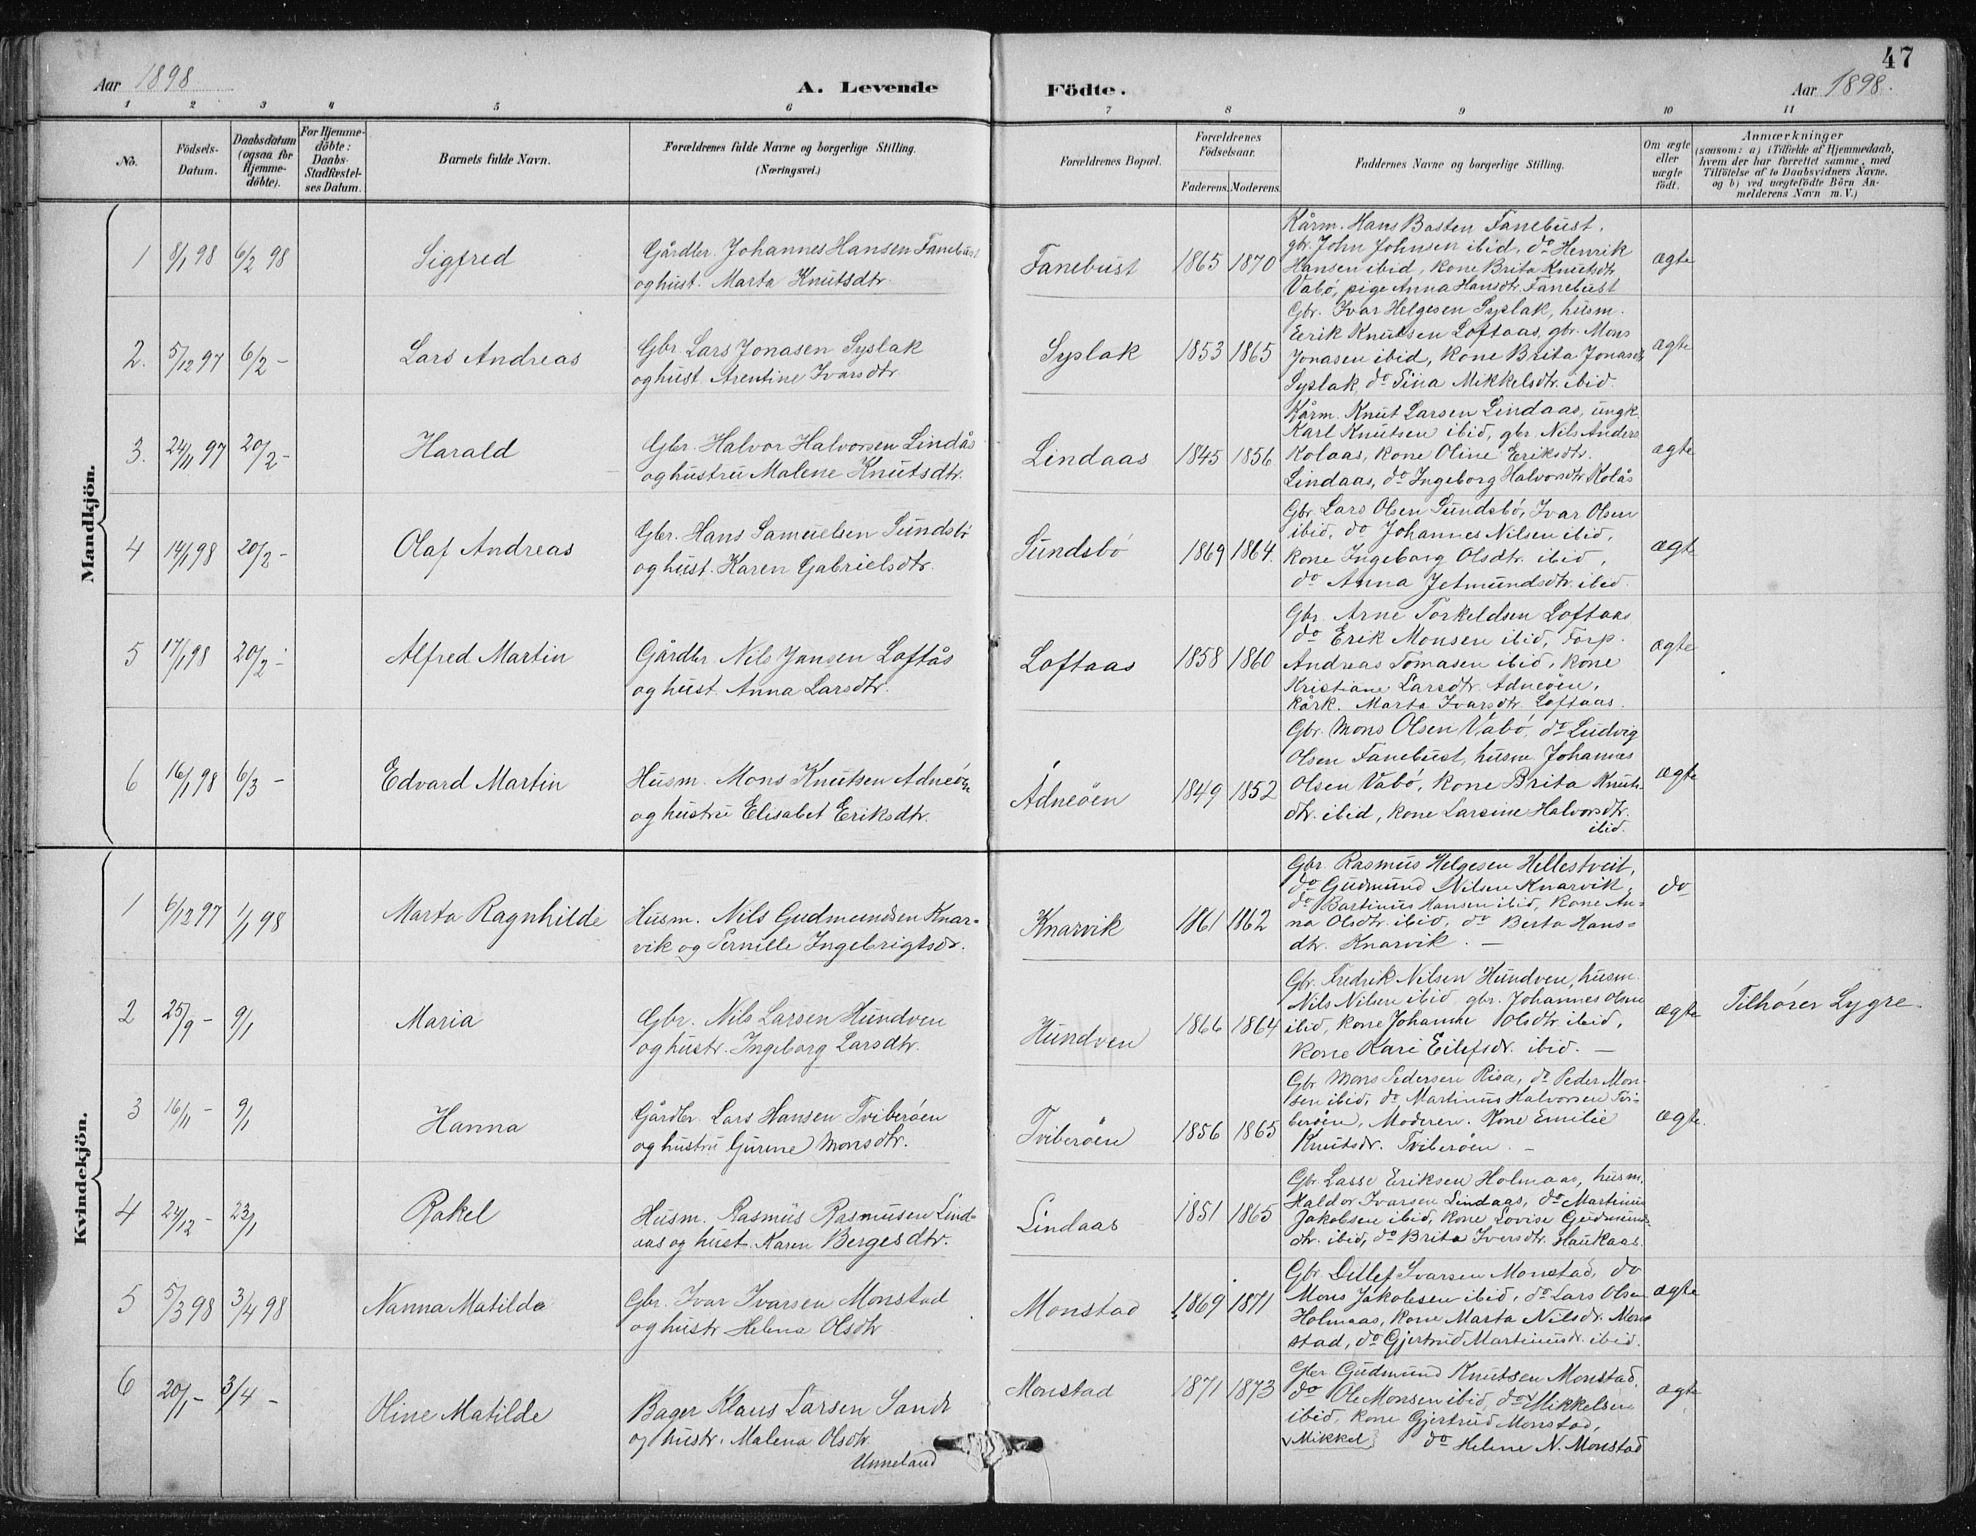 47
Aar 1898 A. Levende Födte. Aar 1898.
1 2 3 4 5 6 7 8 9 10 11
No.
Födsels-
Datum.
Daabsdatum
(ogsaa for
Hjemme-
döbte).
For Hjemme-
döbte:
Daabs-
Stadfæstel-
ses Datum.
Barnets fulde Navn.
Forældrenes fulde Navne og borgerlige Stilling.
(Næringsvei.)
Forældrenes Bopæl.
Forældrenes
Födselsaar.
Faderens. Moderens.
Faddernes Navne og borgerlige Stilling.
Om ægte
eller
uægte
födt.
Anmærkninger
(saasom: a) i Tilfælde af Hjemmedaab,
hvem der har forrettet samme, med
Tilföielse af to Daabsvidners Navne,
og b) ved uægtefödte Börn An-
melderens Navn m. V.)
Mandkjön.
1 8/1 98 6/2 98 Sigfred
Gårdbr. Johannes Hansen Fanebust
og hust. Marta Knutsdtr.
Fanebust 1865 1870
Kårm. Hans Basten Fanebust,
gbr. John Johnsen ibid, do Henrik
Hansen ibid, kone Brita Knutsdtr.
Vabö, pige Anna Hansdtr. Fanebust
ægte
2. 5/12 97 6/2 – Lars Andreas
Gbr. Lars Jonasen Syslak
og hust. Arentine Ivarsdtr.
Syslak 1853 1865
Gbr. Ivar Helgesen Syslak, husm.
Eerik Knutsen Loftaas, gbr. Mons
Jonasen ibid, kone Brita Jonasdtr
Syslak, do Sina Mikkelsdtr. ibid.
ægte
3. 24/11 97 20/2 – Harald
Gbr. Halvor Halvorsen Lindås
og hustru Malene Knutsdtr.
Lindaas 1845 1856
Kårm. Knut Larsen Lindaas, ungk.
Karl Knutsen ibid, gbr. Nils Anders
Kolaas, kone Oline Eriksdtr.
Lindaas, do Ingeborg Halvorsdtr Kolås
ægte
4 14/1 98 20/2 – Olaf Andreas
Gbr. Hans Samuelsen Sundsbö
og hust. Karen Gabrielsdtr.
Sundsbö 1869 1864.
Gbr. Lars Olsen Sundsbö, Ivar Olsen
ibid, do Johannes Nilsen ibid,
kone Ingeborg Olsdtr. ibid,
do Anna Jetmundsdtr. ibid.
ægte
5 17/1 98 20/2 – Alfred Martin
Gårdbr. Nils Jansen Loftås
og hust. Anna Larsdtr.
Loftaas 1858 1860
Gbr. Arne Torkeldsen Loftaas
do Erik Monsen ibid, Forp.
Andreas Tomasen ibid, kone
Kristiane Larsdtr. Adneöen,
kårk. Marta Ivarsdtr. Loftaas.
ægte
6 16/1 98 6/3 – Edvard Martin
Husm. Mons Knutsen Adneöen
og hustru Elisabet Eriksdtr.
Adneöen 1849 1852
Gbr. Mons Olsen Vabö, do Ludvig
Olsen Fanebust, husm Johannes
Olsen Vabö, kone Brita Knuts-
dtr. ibid, kone Larsine Halvorsdtr.
ibid.
ægte
Kvindekjön.
1 6/12 97 1/1 98 Marta Ragnhilde
Husm. Nils Gudmundsen Knar-
vik og Pernille Ingebrigtsdr.
Knarvik 1861 1862
Gbr. Rasmus Helgesen Hellestveit,
do Gudmund Nilsen Knarvik,
do Bartinius Hansen ibid, kone An-
na Olsdtr. ibid, do Berta Hans-
dtr. Knarvik. –
do
2 25/9 – 9/1 Maria
Gbr. Nils Larsen Hundven
og hustr. Ingeborg Larsdtr.
Hundven 1866 1864
Gbr. Fredrik Nilsen Hundven, husm.
Nils Nilsen ibid, gbr. Johannes Olsen
ibid, kone Johanne Olsdtr ibid,
kone Kari Eilefsdr. ibid. –
ægte Tilhörer Lygre
3 16/11 – 9/1 Hanna
Gårdbr. Lars Hansen Tviberöen
og hustru Gurine Monsdtr.
Tviberöen 1856 1865
Gbr Mons Pedersen Risa, do Peder Mon-
sen ibid, do Martinus Halvorsen Tvi-
beröen, Moderen. Kone Emilie
Knutsdr. Tviberöen. –
ægte.
4 24/12 – 23/1 Rakel
Husm. Rasmus Rasmusen Lind-
aas og hust. Karen Bergesdtr.
Lindaas 1851 1865
Gbr Lasse Eriksen Holmaas, husm.
Haldor Ivarsen Lindaas, do Martinus
Jakobsen ibid, kone Lovise Gudmunds-
dtr. ibid, do Brita Iversdtr. Haukaas.
5 5/3 98 3/4 98 Nanna Matilde
Gbr. Ivar Ivarsen Monstad
og hustr Helena Olsdtr
Monstad 1869 1871
Gbr. Ditlef Ivarsen Monstad, do
Mons Jakobsen ibid, do Lars Olsen
Holmaas, kone Marta Nilsdr. Mon-
stad, do Gjertrud Martinusdr. ibid.
ægte
6 20/1 – 3/4 – Oline Matilde
Bager Klaus Larsen Sandt
og hustr. Malena Olsdtr.
Unneland
Monstad 1871 1873
Gbr Gudmund Knutsen Monstad,
do Ole Monsen ibid, do v Mikkelsen
ibid, kone Gjertrud Monstad,
v Mikkel} do Helene N. Monstad
ægt